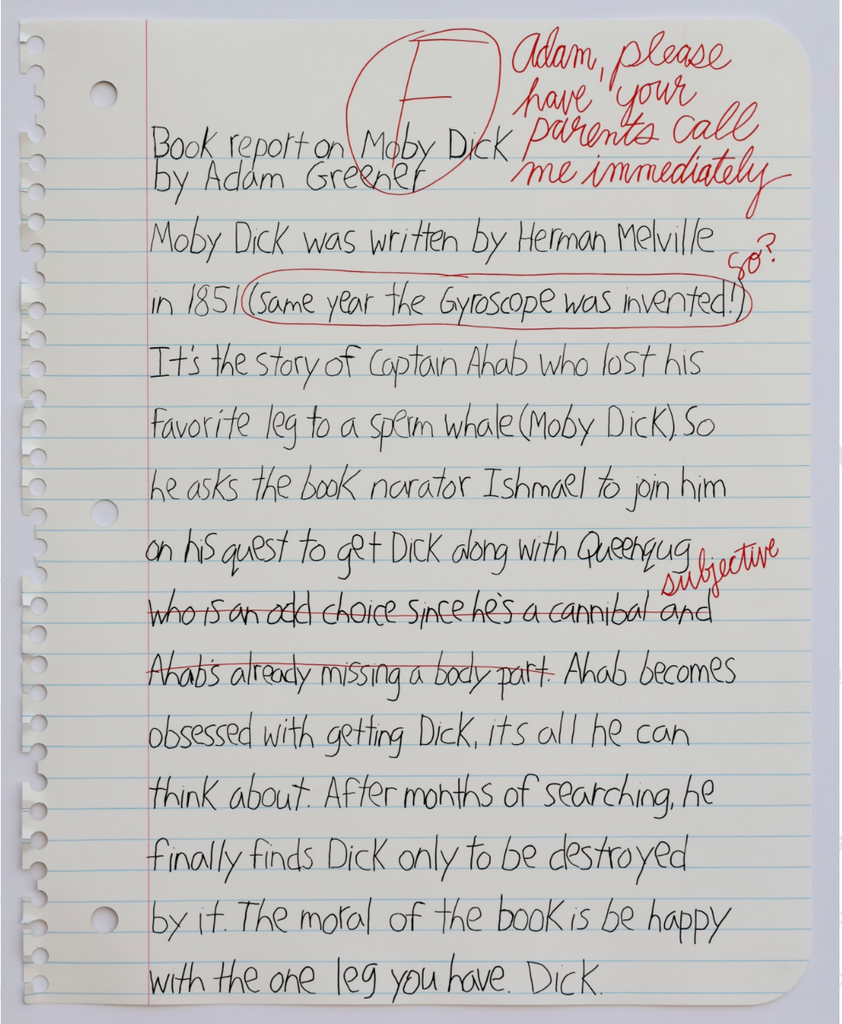 F
Adam, please
have your
parents call
me immediately
Book report on Moby Dick
by Adam Greener
Moby Dick was written by Herman Melville
so?
in 1851 (same year the Gyroscope was invented!)
It's the story of Captain Ahab who lost his
favorite leg to a sperm whale (Moby Dick). So
he asks the book narator Ishmael to join him
on his quest to get Dick along with Queenqug
subjective
who is an odd choice since he's a cannibal and
Ahab's already missing a body part. Ahab becomes
obsessed with getting Dick, its all he can
think about. After months of searching, he
finally finds Dick only to be destroyed
by it. The moral of the book is be happy
with the one leg you have. Dick.